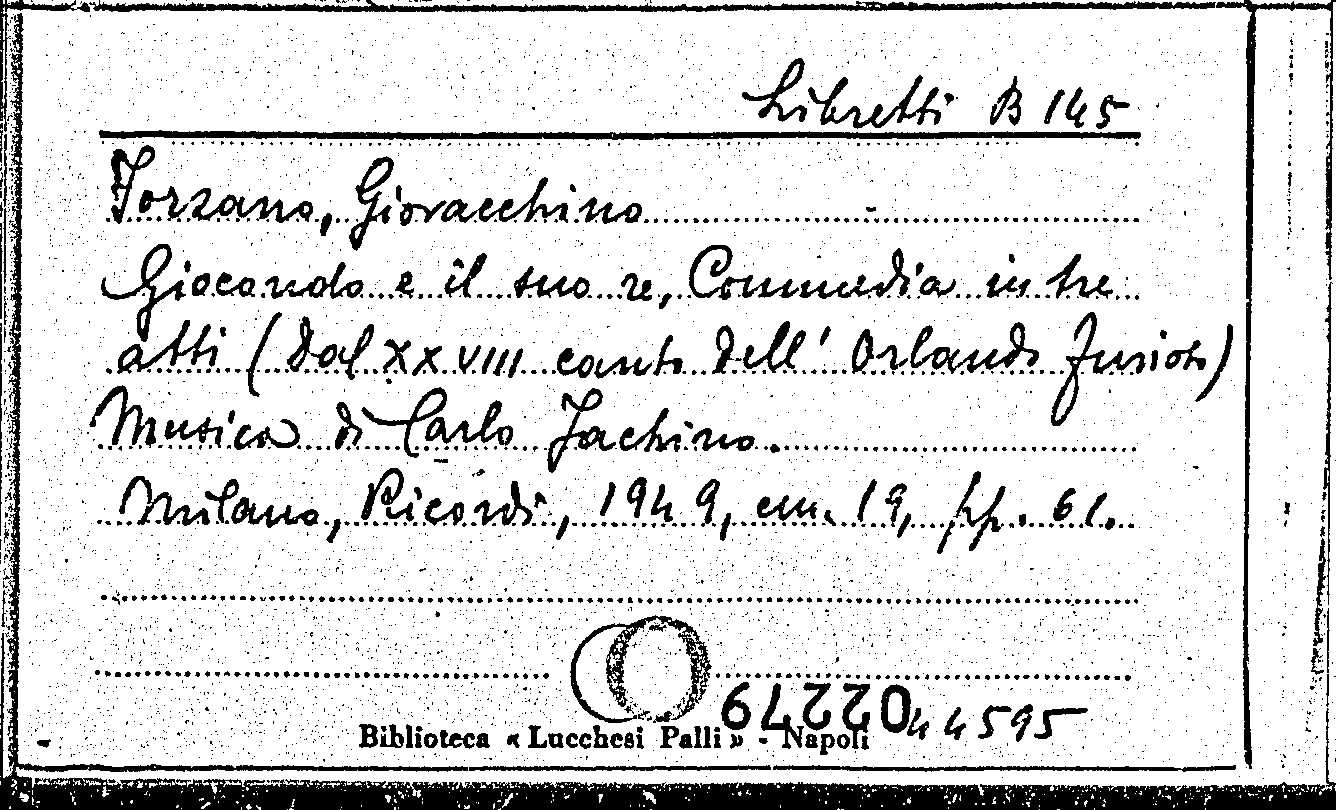 Libretti B 145
Forzano, Giovacchino
Giocondo e il suo re, Commedia in tre
atti (dal XXVIII canto dell' Orlando furioso)
Musica di Carlo Jachino.
Milano, Ricordi, 1949, cm. 19, pp. 61.
44595
Biblioteca « Lucchesi Palli » - Napoli